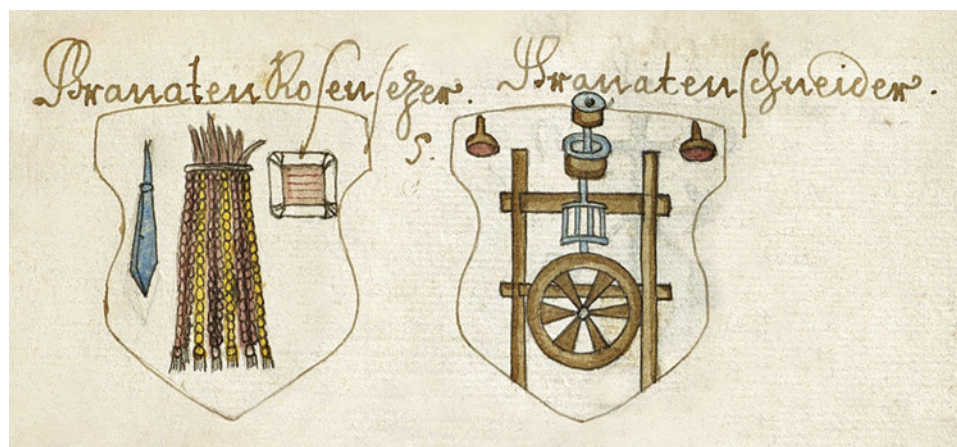 Granaten Rosensezer. Granatenschneider.